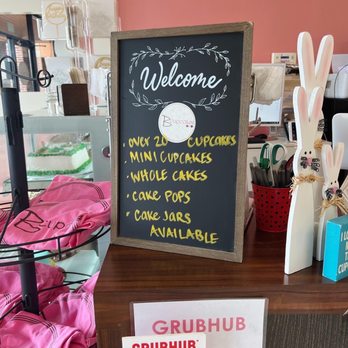 Welcome
• OVER 20 CUPCAKES
• MINI CUPCAKES
• WHOLE CAKES
• CAKE POPS
• CAKE JARS
AVAILABLE
GRUBHUB
GRUBHUB